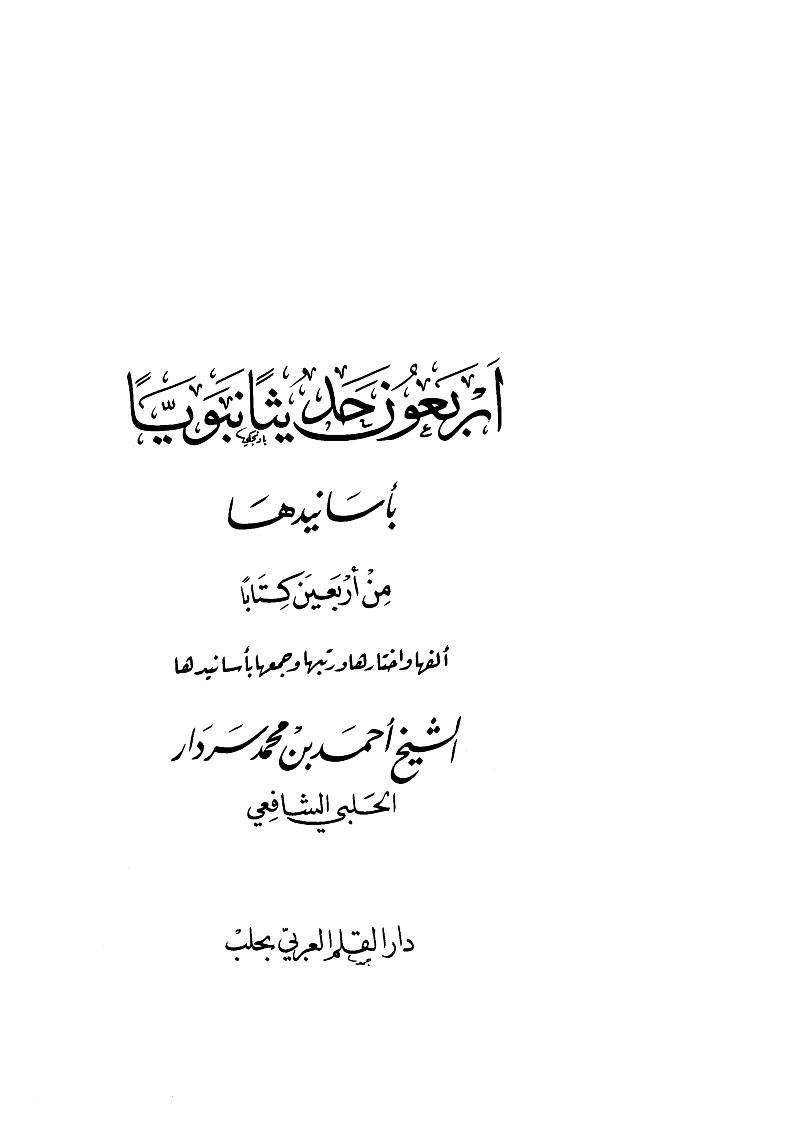 أَرْبَعُونَ حَدِيثًا نَبَوِيًّا
بأسَانيدهَا
مِنْ أَرْبَعِينَ كِتَابًا
ألفها واختارها ورتبها وجمعها بأسانيدها
الشيخ أحمَد بن محمّد سَردَار
الحَلبي الشافِعي
دار القلم العربيّ بحلبْ